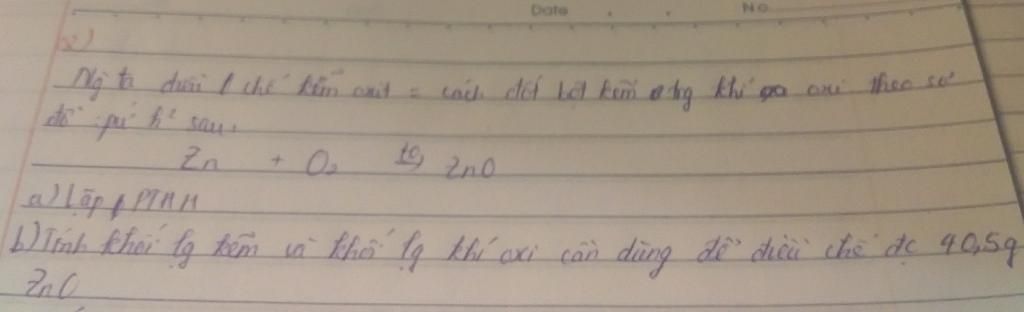 Date No
2)
Ng ta điều chế kẽm oxit = cách đốt bột kẽm trg khí oxi theo sơ
đồ pứ h² sau:
Zn + O₂ t°→ ZnO
a) Lập PTHH
b) Tính khối lg kẽm và khối lg khí oxi cần dùng để điều chế đc 40,5g
ZnO